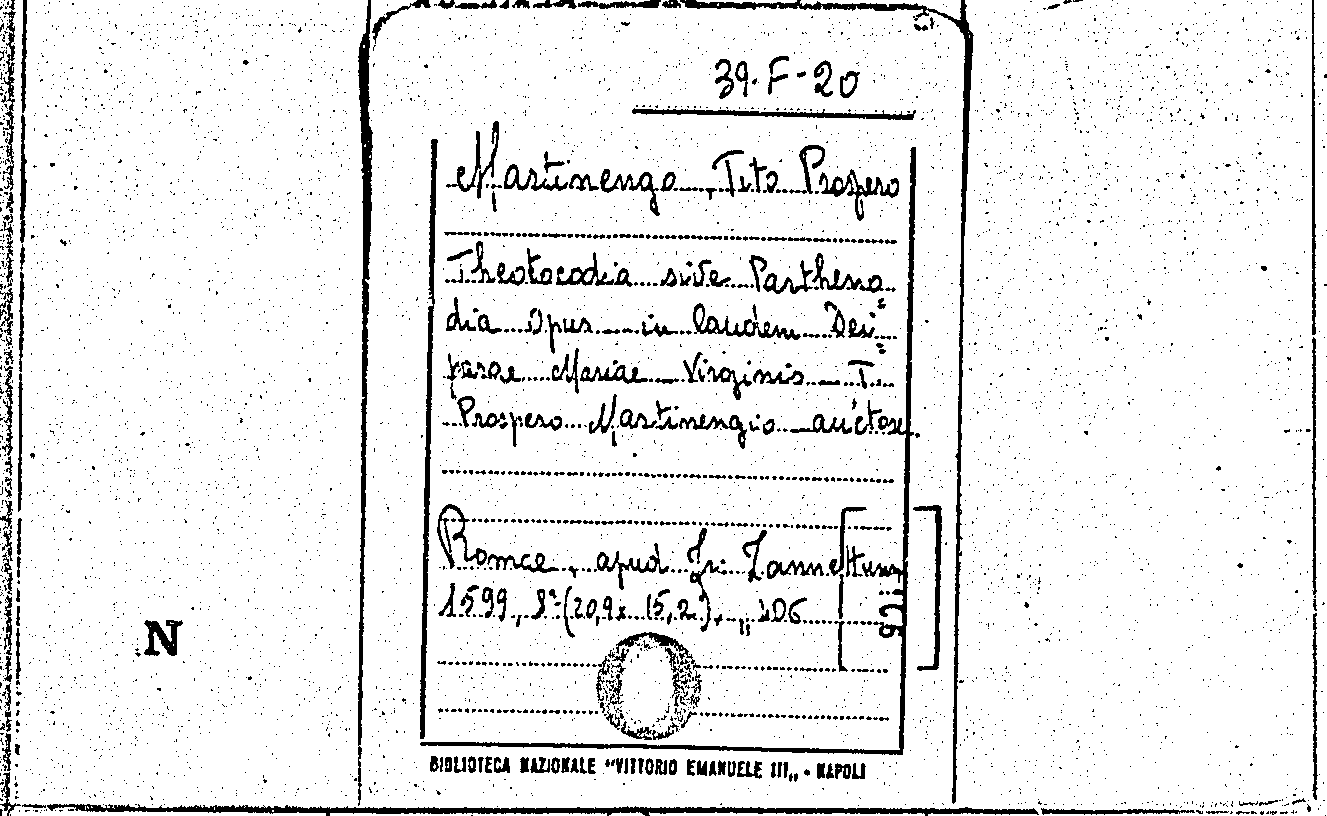 39.F-20
Martinengo, Tito Prospero
Theotocodia sive Partheno=
dia Opus in laudem Dei=
parae Mariae Virginis T.
Prospero Martinengio auctore.
Romae, apud Fr: Zannettum
1599, 8º (20,9x 15,2), 206
N
BIBLIOTECA NAZIONALE "VITTORIO EMANUELE III„ • NAPOLI